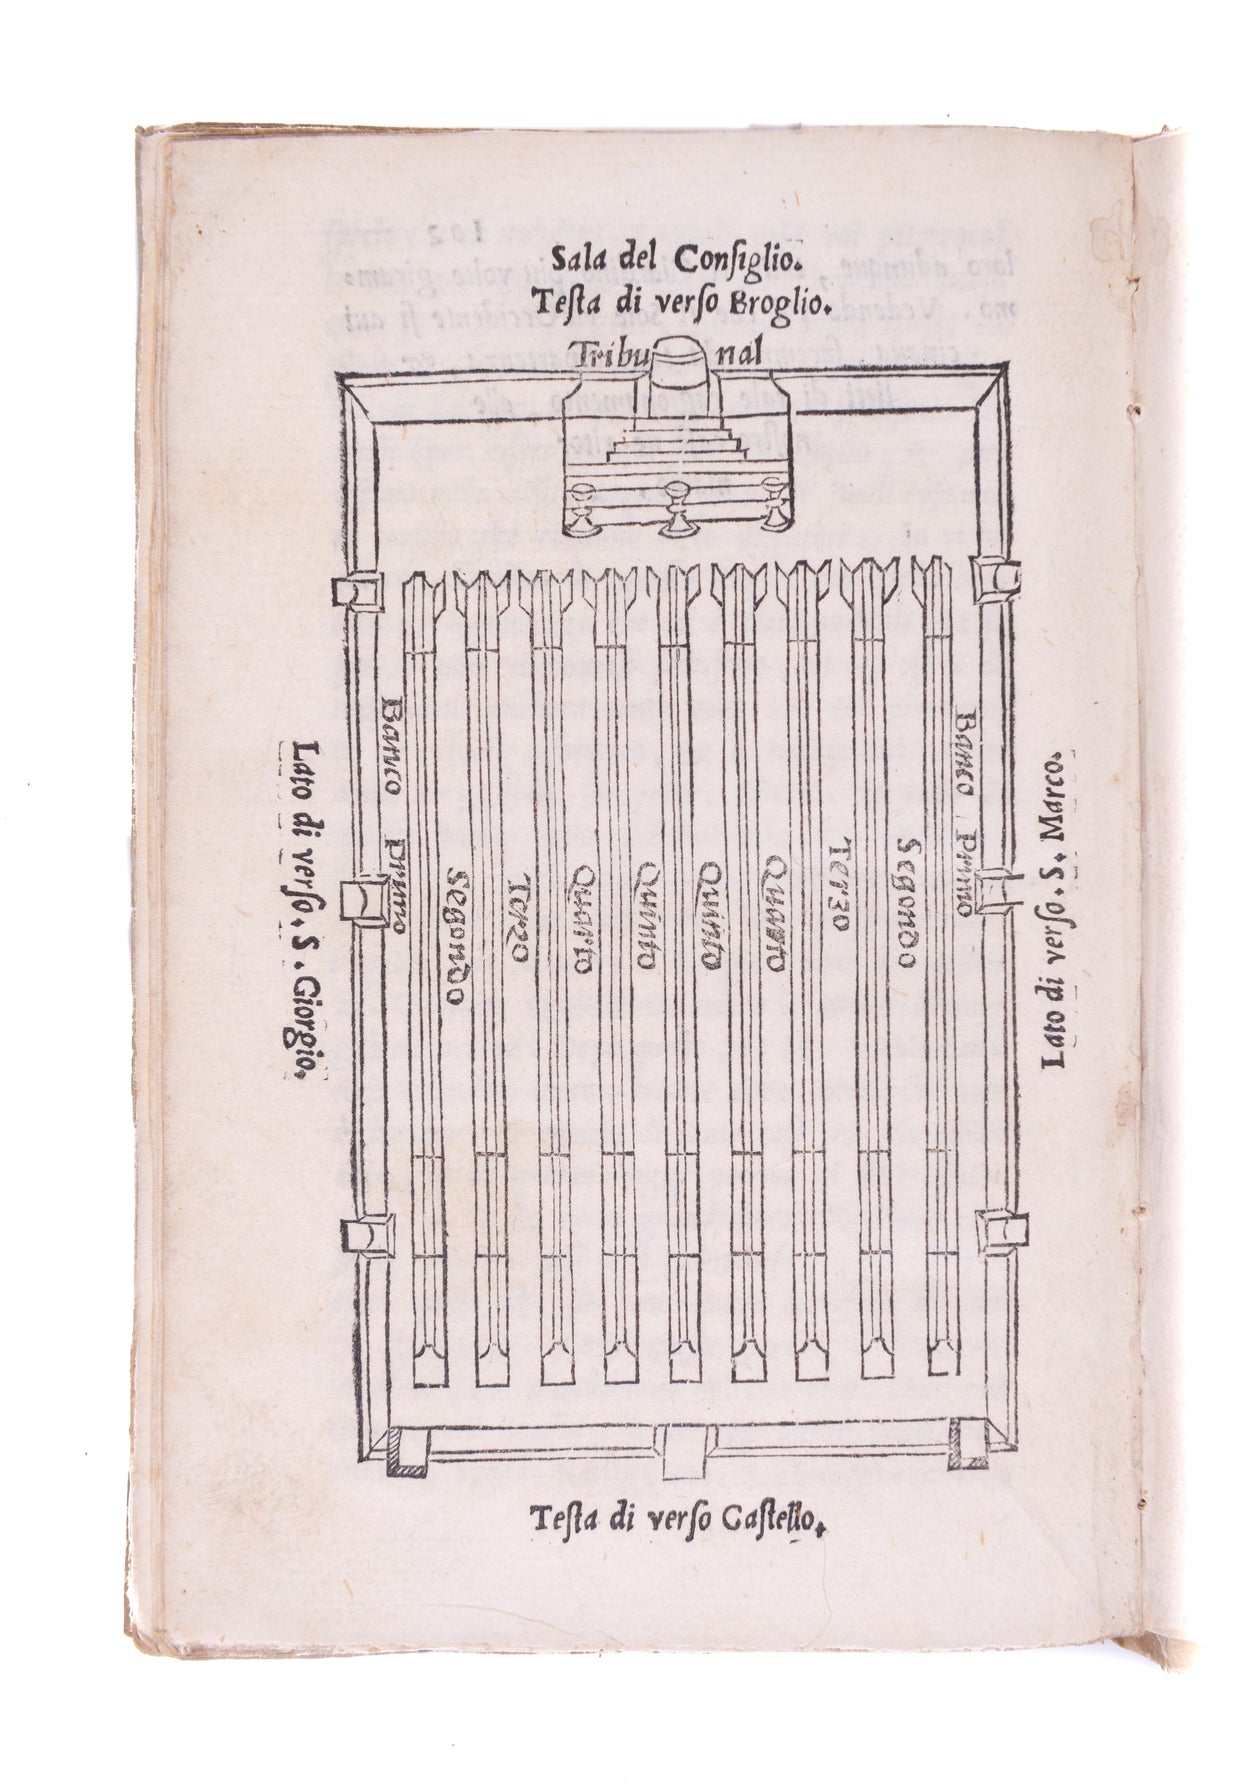 Sala del Conſiglio.
Teſta di verſo Broglio.
Tribunal
Lato di verſo. S. Giorgio.
Banco Primo
Segondo
Terzo
Quarto
Quinto
Quinto
Quarto
Terzo
Segondo
Banco Primo
Lato di verſo. S. Marco.
Teſta di verſo Caſtello.